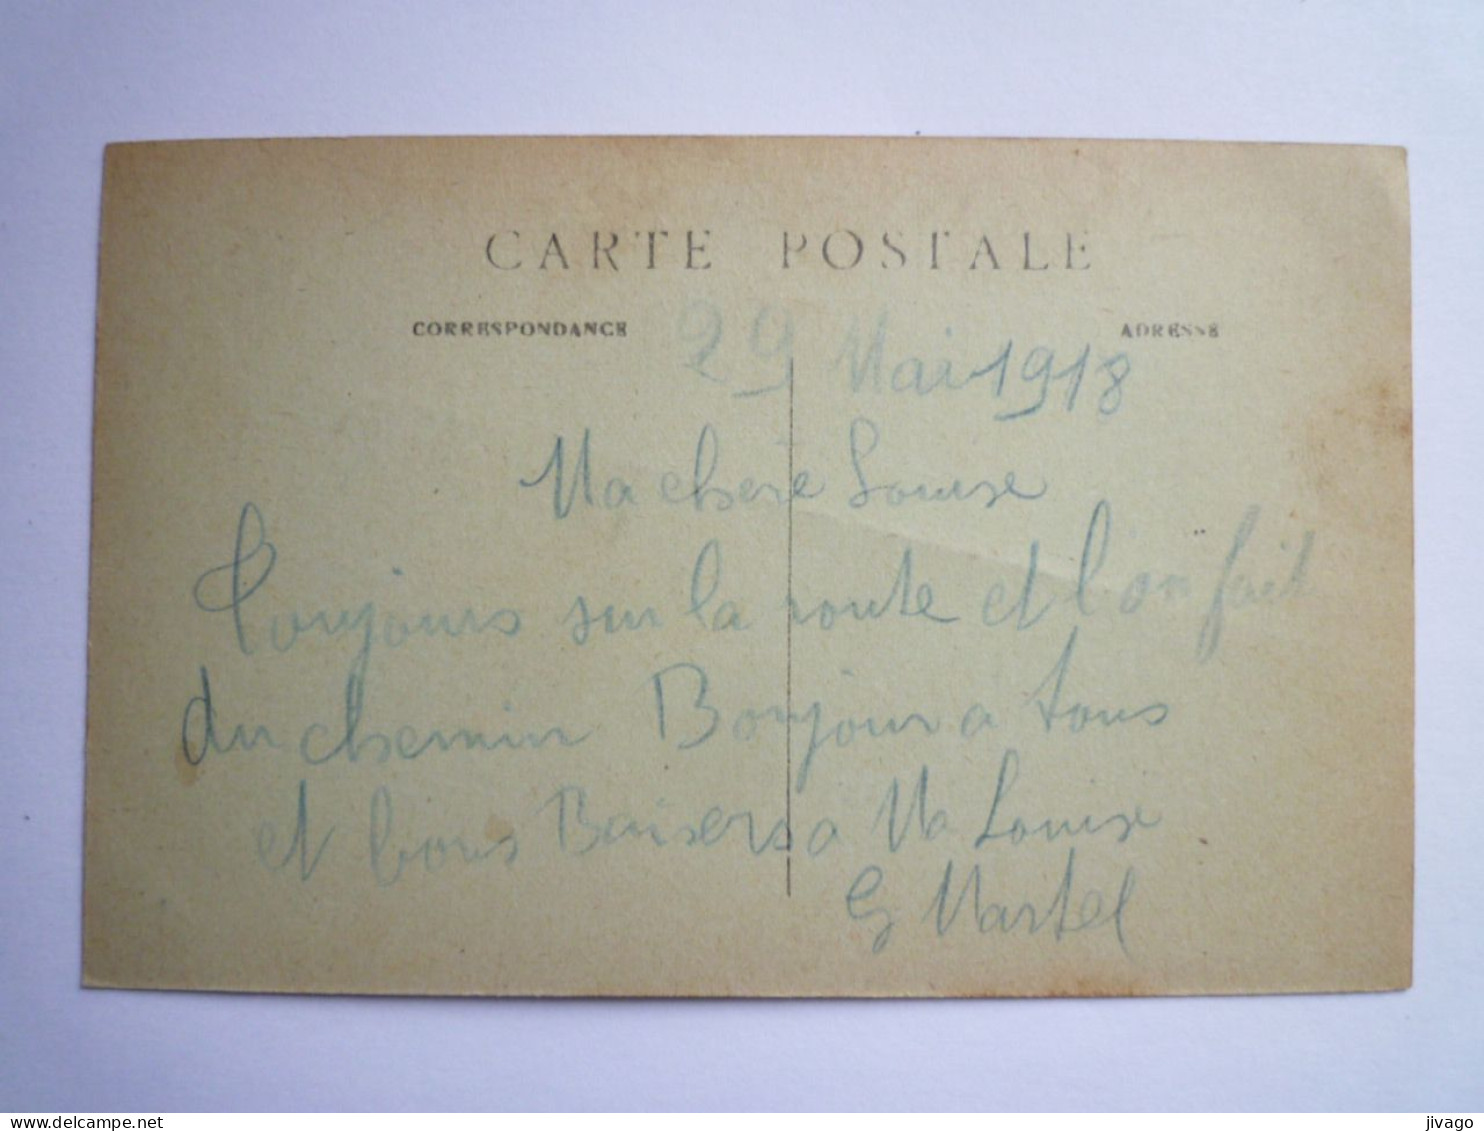 CARTE POSTALE
CORRESPONDANCE
ADRESSE
29 Mai 1918
Ma chère Louise
Toujours sur la route et l'on fait
du chemin Bonjour a tous
et bons Baisers a Ma Louise
G Martel
jivago